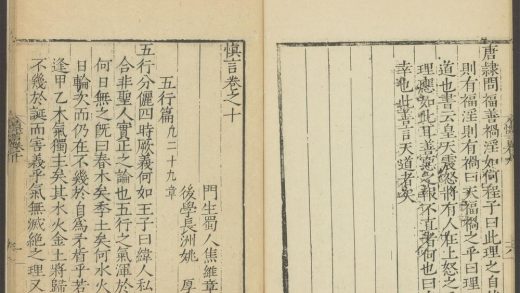 唐隷問福善禍淫如何程子曰此理之自
則有福淫則有禍曰天福禍之乎曰理
道也書云皇天震怒將有人在上怒之
理應如此耳善惡之報不直者何也曰
幸也此書言天道者矣
慎言卷之十
門生蜀人焦維章
後學長洲姚厚
五行篇 凡二十九章
五行分儷四時厥義何如王子曰緯人私
合非聖人實正之論也五行之氣渾於
何日無之既曰春木矣季土矣何水火
日輪次而仍在不幾於自為矛盾乎若
逢甲乙木氣獨主矣其水火金土將歸
不幾於誕而害義乎氣無滅絕之理又